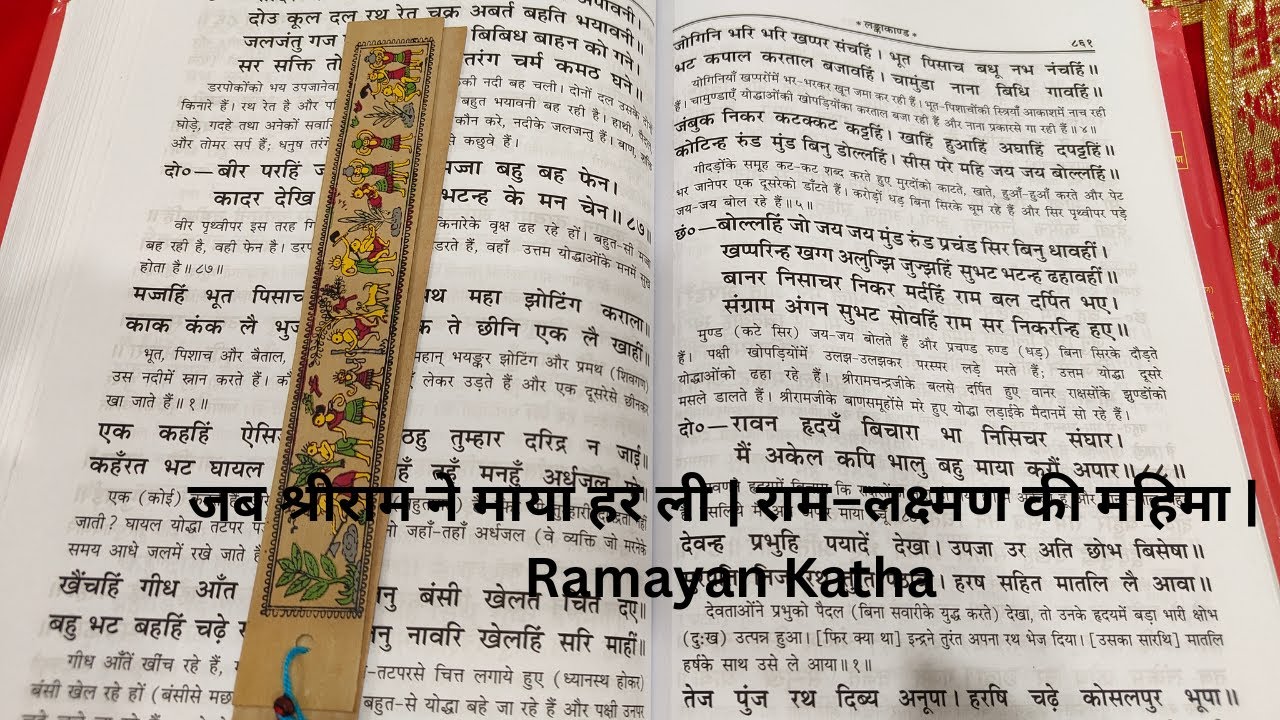 दोउ कूल दल रथ रेत चक्र अबर्त बहति भयावनी॥
जलजंतु गज बिबिध बाहन को गने।
सर सक्ति तो तरंग चर्म कमठ घने॥
डरपोकोंको भय उपजानेव की नदी बह चली। दोनों दल उसके
किनारे हैं। रथ रेत है और प बहुत भयावनी बह रही है। हाथी,
घोड़े, गदहे तथा अनेकों सवारि कौन करे, नदीके जलजन्तु हैं। बाण,
और तोमर सर्प हैं; धनुष तरंगे से कछुवे हैं।
दो०—बीर परहिं ज मज्जा बहु बह फेन।
कादर देखि भटन्ह के मन चेन॥८७॥
वीर पृथ्वीपर इस तरह गि किनारेके वृक्ष ढह रहे हों। बहुत-सी मज्जा
बह रही है, वही फेन है। डरप डरते हैं, वहाँ उत्तम योद्धाओंके मनमें सुख
होता है॥८७॥
मज्जहिं भूत पिसाच मथ महा झोटिंग कराला॥
काक कंक लै भुज क ते छीनि एक लै खाहीं॥
भूत, पिशाच और बैताल, महान् भयङ्कर झोटिंग और प्रमथ (शिवगण)
उस नदीमें स्नान करते हैं। कौ लेकर उड़ते हैं और एक दूसरेसे छीनकर
खा जाते हैं॥१॥
एक कहहिं ऐसि ठहु तुम्हार दरिद्र न जाई॥
कहँरत भट घायल हँ तहँ मनहुँ अर्धजल परे॥
एक (कोई)
जाती? घायल योद्धा तटपर प जहाँ-तहाँ अर्धजल (वे व्यक्ति जो मरनेके
समय आधे जलमें रखे जाते हैं
खैंचहिं गीध आँत नु बंसी खेलत चित दए॥
बहु भट बहहिं चढ़े नु नावरि खेलहिं सरि माहीं॥
गीध आँतें खींच रहे हैं, -तटपरसे चित्त लगाये हुए (ध्यानस्थ होकर)
बंसी खेल रहे हों (बंसीसे मछ -से योद्धा बहे जा रहे हैं और पक्षी उनपर
* लङ्काकाण्ड *
८६१
जोगिनि भरि भरि खप्पर संचहिं। भूत पिसाच बधू नभ नंचहिं॥
भट कपाल करताल बजावहिं। चामुंडा नाना बिधि गावहिं॥
योगिनियाँ खप्परोंमें भर-भरकर खून जमा कर रही हैं। भूत-पिशाचोंकी स्त्रियाँ आकाशमें नाच रही
हैं। चामुण्डाएँ योद्धाओंकी खोपड़ियोंका करताल बजा रही हैं और नाना प्रकारसे गा रही हैं॥४॥
जंबुक निकर कटक्कट कट्टहिं। खाहिं हुआहिं अघाहिं दपट्टहिं॥
कोटिन्ह रुंड मुंड बिनु डोल्लहिं। सीस परे महि जय जय बोल्लहिं॥
गीदड़ोंके समूह कट-कट शब्द करते हुए मुरदोंको काटते, खाते, हुआँ-हुआँ करते और पेट
भर जानेपर एक दूसरेको डाँटते हैं। करोड़ों धड़ बिना सिरके घूम रहे हैं और सिर पृथ्वीपर पड़े
जय-जय बोल रहे हैं॥५॥
छं०—बोल्लहिं जो जय जय मुंड रुंड प्रचंड सिर बिनु धावहीं।
खप्परिन्ह खग्ग अलुज्झि जुज्झहिं सुभट भटन्ह ढहावहीं॥
बानर निसाचर निकर मर्दहिं राम बल दर्पित भए।
संग्राम अंगन सुभट सोवहिं राम सर निकरन्हि हए॥
मुण्ड (कटे सिर) जय-जय बोलते हैं और प्रचण्ड रुण्ड (धड़) बिना सिरके दौड़ते
हैं। पक्षी खोपड़ियोंमें उलझ-उलझकर परस्पर लड़े मरते हैं; उत्तम योद्धा दूसरे
योद्धाओंको ढहा रहे हैं। श्रीरामचन्द्रजीके बलसे दर्पित हुए वानर राक्षसोंके झुण्डोंको
मसले डालते हैं। श्रीरामजीके बाणसमूहोंसे मरे हुए योद्धा लड़ाईके मैदानमें सो रहे हैं।
दो०—रावन हृदयँ बिचारा भा निसिचर संघार।
मैं अकेल कपि भालु बहु माया करौं अपार॥८८॥
जब श्रीराम ने माया हर ली | राम-लक्ष्मण की महिमा |
Ramayan Katha
देवन्ह प्रभुहि पयादें देखा। उपजा उर अति छोभ बिसेषा॥
निज रथ तुरत पठावा। हरष सहित मातलि लै आवा॥
देवताओंने प्रभुको पैदल (बिना सवारीके युद्ध करते) देखा, तो उनके हृदयमें बड़ा भारी क्षोभ
(दुःख) उत्पन्न हुआ। [फिर क्या था] इन्द्रने तुरंत अपना रथ भेज दिया। [उसका सारथि] मातलि
हर्षके साथ उसे ले आया॥१॥
तेज पुंज रथ दिब्य अनूपा। हरषि चढ़े कोसलपुर भूपा॥